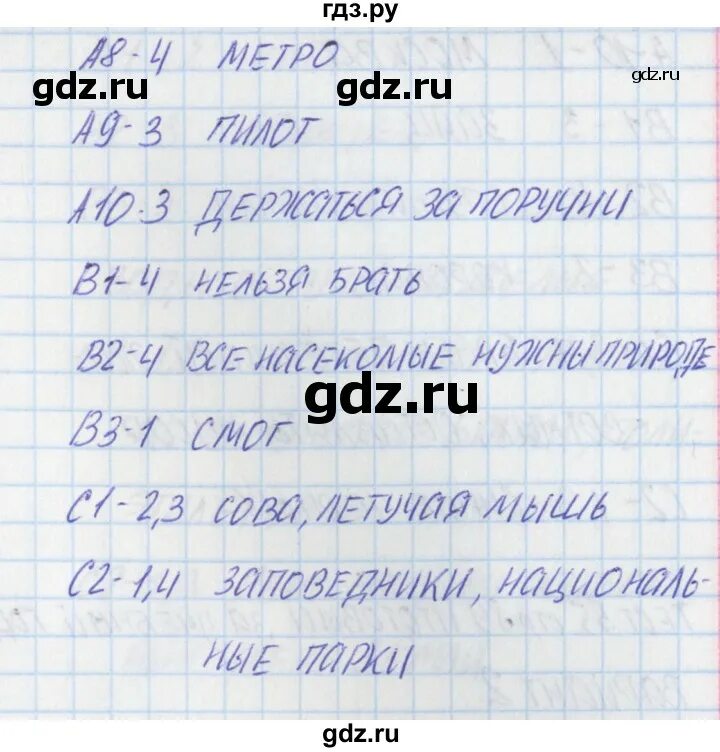 гдз.ру
А8-4 МЕТРО
gdz.ru
gdz.ru
gdz.ru
А9-3 ПИЛОТ
А10-3 ДЕРЖАТЬСЯ ЗА ПОРУЧНИ
В1-4 НЕЛЬЗЯ БРАТЬ
В2-4 ВСЕ НАСЕКОМЫЕ НУЖНЫ ПРИРОДЕ
gdz.ru
В3-1 СМОГ
С1-2,3 СОВА, ЛЕТУЧАЯ МЫШЬ
С2-1,4 ЗАПОВЕДНИКИ, НАЦИОНАЛЬ-
НЫЕ ПАРКИ
gdz.ru